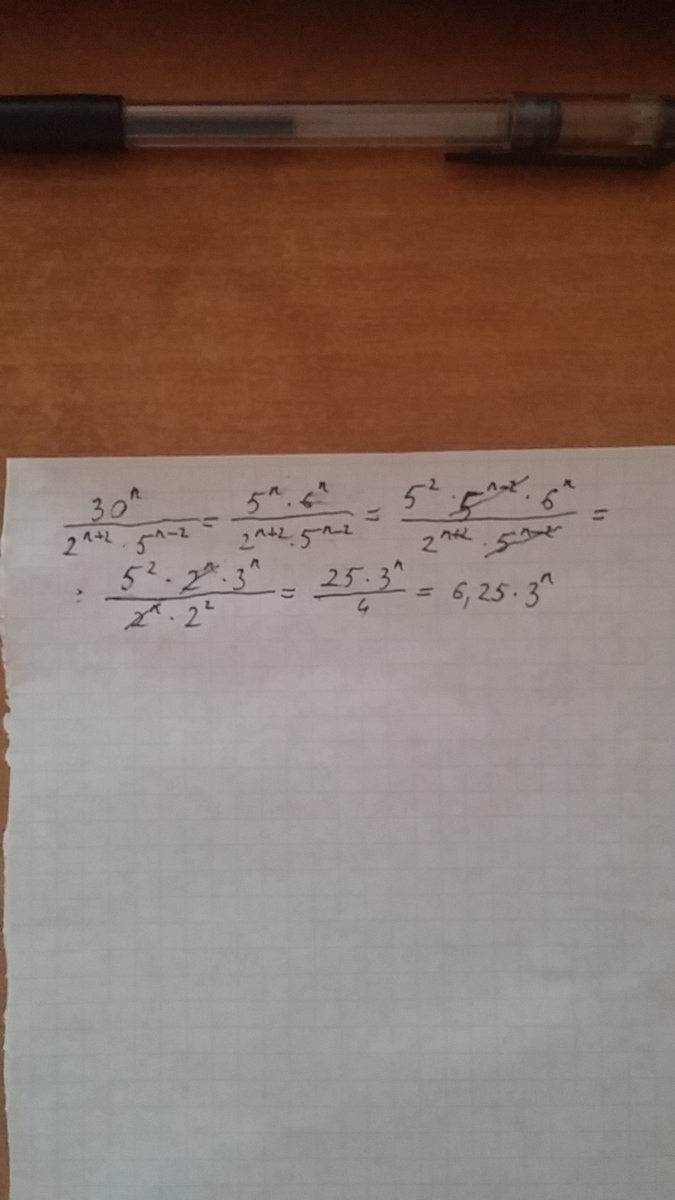 30ⁿ/(2ⁿ⁺² · 5ⁿ⁻²) = (5ⁿ · 6ⁿ)/(2ⁿ⁺² · 5ⁿ⁻²) = (5² · 5ⁿ⁻² · 6ⁿ)/(2ⁿ⁺² · 5ⁿ⁻²) =
= (5² · 2ⁿ · 3ⁿ)/(2ⁿ · 2²) = (25 · 3ⁿ)/4 = 6,25 · 3ⁿ